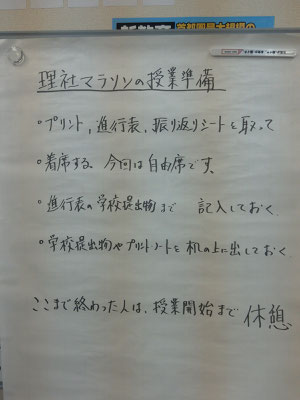 首都圏最大規模の
理社マラソンの授業準備
・プリント、進行表、振り返りシートを取って
・着席する。今回は自由席です。
・進行表の学校提出物まで 記入しておく。
・学校提出物やプリント・ノートを机の上に出しておく。
ここまで終わった人は、授業開始まで休憩